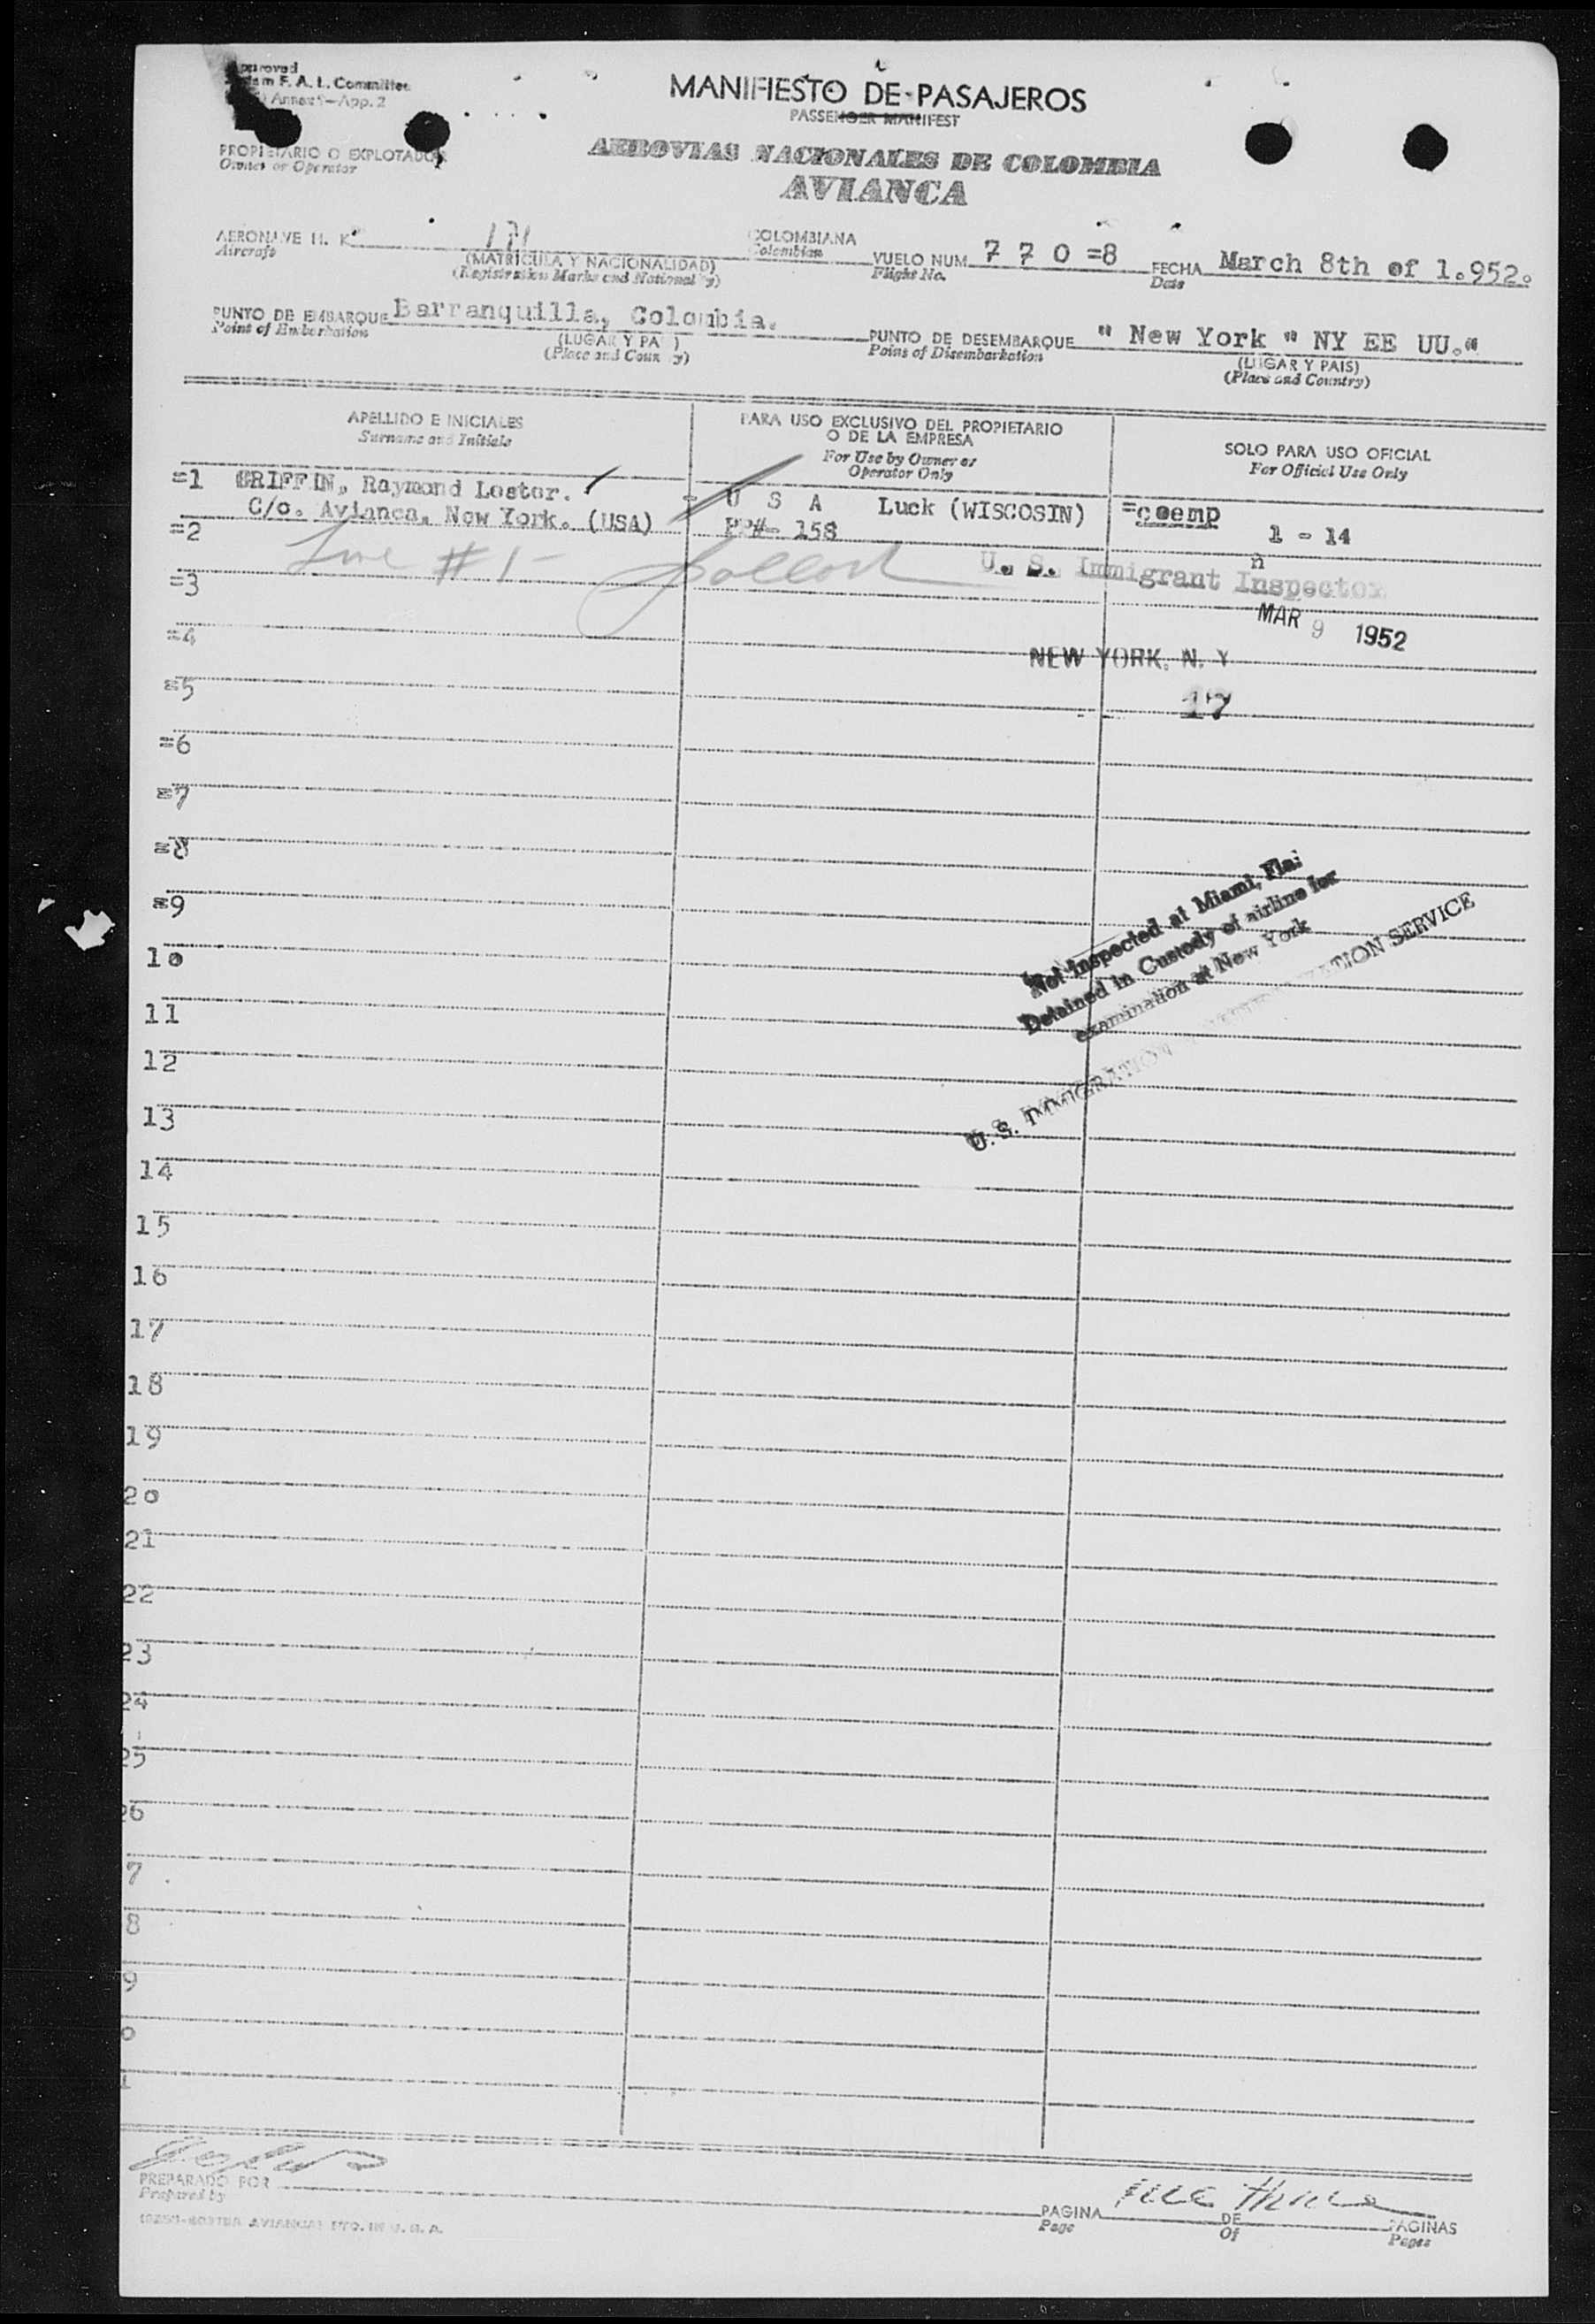 Approved
F. A. L. Committee
Annex 9—App. 2
MANIFIESTO DE PASAJEROS
PASSENGER MANIFEST
PROPIETARIO O EXPLOTADOR
Owner or Operator
AEROVIAS NACIONALES DE COLOMBIA
AVIANCA
AERONAVE H. K. 171 COLOMBIANA
Aircraft Colombian
(MATRICULA Y NACIONALIDAD)
(Registration Marks and Nationality)
VUELO NUM 7 7 0 =8
Flight No.
FECHA March 8th of 1.952.
Date
PUNTO DE EMBARQUE Barranquilla, Colombia.
Point of Embarkation
(LUGAR Y PA )
(Place and Coun y)
PUNTO DE DESEMBARQUE " New York " NY EE UU."
Point of Disembarkation
(LUGAR Y PAIS)
(Place and Country)
APELLIDO E INICIALES
Surname and Initials
PARA USO EXCLUSIVO DEL PROPIETARIO
O DE LA EMPRESA
For Use by Owner or
Operator Only
SOLO PARA USO OFICIAL
For Official Use Only
=1 GRIFFIN, Raymond Lester. U S A Luck (WISCOSIN) =coemp
C/o. Avianca, New York. (USA) PP#- 158 1 - 14
=2
Line #1-
U. S. Immigrant Inspector
n
=3
MAR 9 1952
=4
NEW YORK, N. Y
=5
17
=6
=7
=8
=9
Not Inspected at Miami, Fla.
Detained in Custody of airline for
examination at New York
U. S. IMMIGRATION NATURALIZATION SERVICE
10
11
12
13
14
15
16
17
18
19
20
21
22
23
24
25
26
7
8
9
0
1
PREPARADO POR
Prepared by
PAGINA DE PAGINAS
Page Of Pages